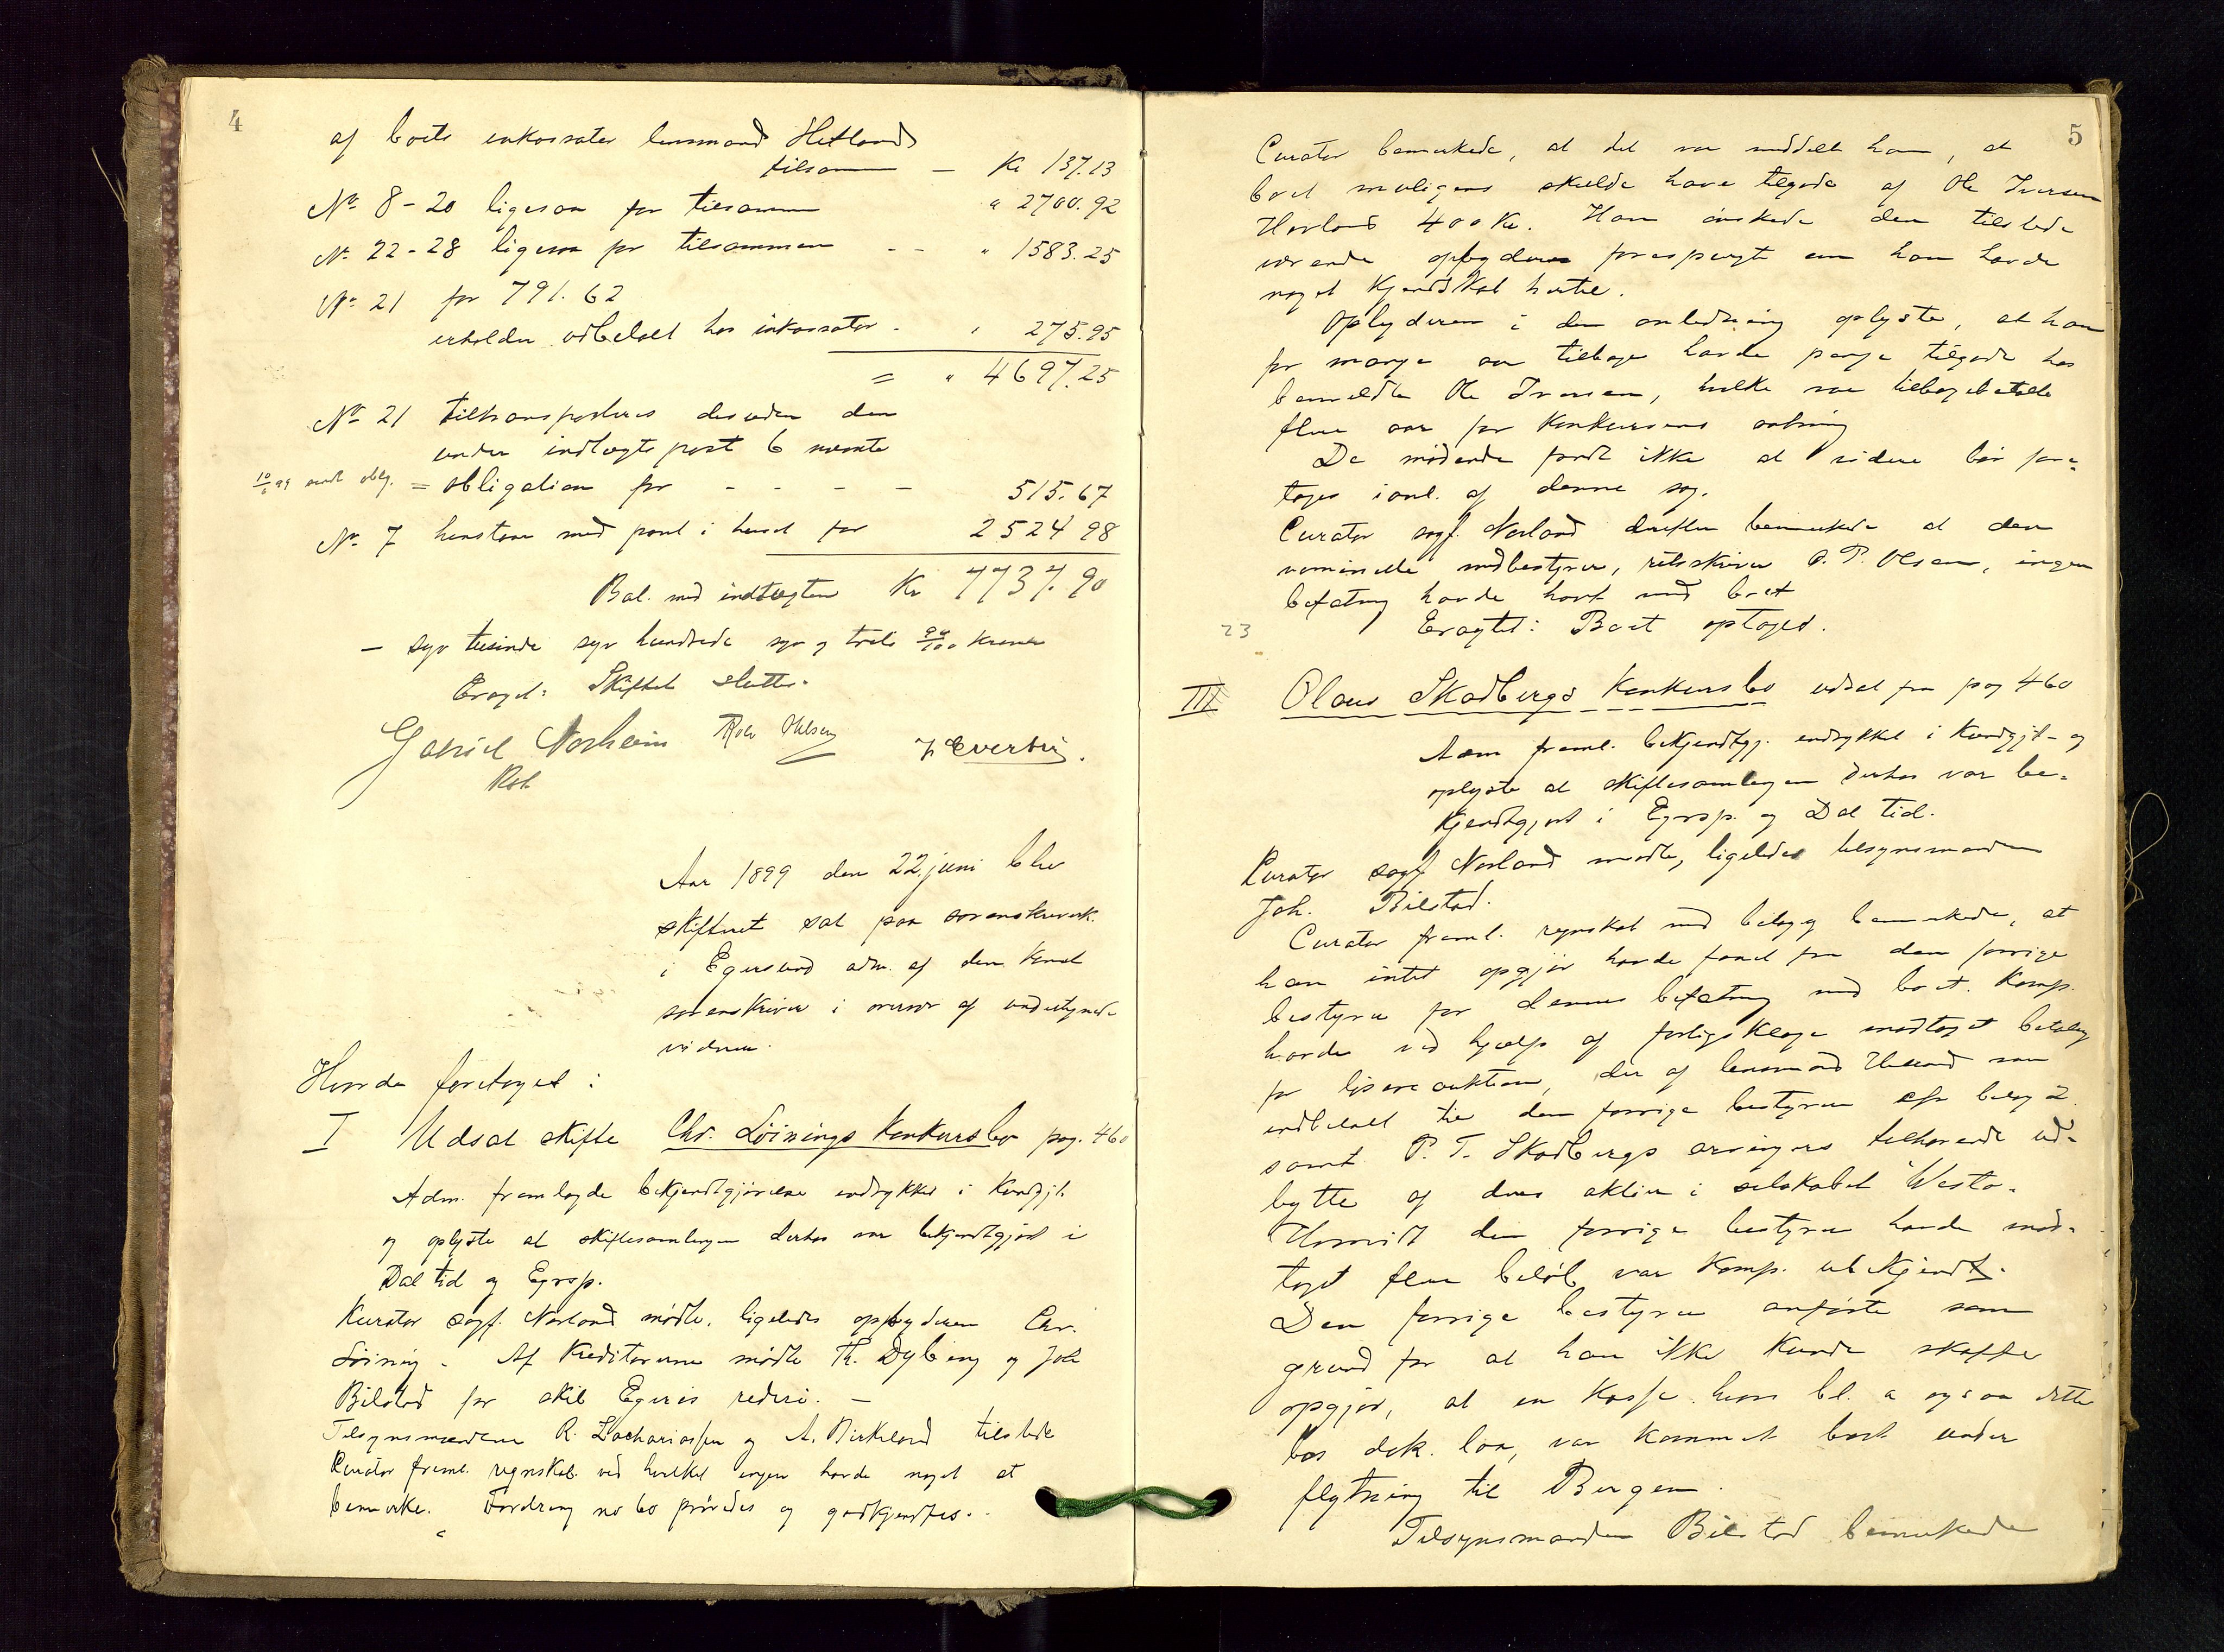 4
af boets inkassator lensmand Hetland
tilsammen — Kr 137.13
No 8-20 ligesaa for tilsammen " 2700.92
No 22-28 ligesaa for tilsammen - - " 1583.25
No 21 for 791.62
erholder udbetalt hos inkassator - " 275.95
= " 4697.25
No 21 tiltransporteres desuden den
under indtægtspost 6 nævnte
obligation for - - - - 515.67
No 7 henstaar med pant i huset for 2524 98
Bal. med indtægten Kr 7737.90
— syv tusinde syv hundrede syv og treti 90/100 kroner
Eragtet: Skiftet sluttes.
Gabriel Norheim
Aar 1899 den 22 juni blev
skifteret sat paa sorenskriverk.
i Egersund adm. af den konst
sorenskriver i overvær af undertegnede
vidner.
Hvorda foretoges:
I Udsat skifte Chr. Løinings Konkursbo pag. 460
Adm. fremlagde bekjendtgjørelse indrykket i Kundgjt.
og oplyste at skiftesamlingen derhos var bekjendtgjort i
Dal tid og Egrsp.
Kurator sagf. Norland mødte. ligeledes opbyderen Chr.
Løining. Af Kreditorerne mødte Th. Dybing og Joh
Bilstad for skib Egeris rederi. —
Tilsynsmændene R. Zachariassen og A. Birkeland tilstede
Curator freml. regnskab ved hvilket ingen havde noget at
bemærke. Fordring no 60 prøvedes og godkjendtes.
5
Curator bemærkede, at det var meddelt ham, at
boet muligens skulde have tilgode af Ole Iversen
Havland 400 Kr. Han ønskede den tilstede
værende opbyderen forespurgt om han havde
noget kjendskab hertil.
Opbyderen i den anledning oplyste, at han
for mange aar tilbage havde penge tilgode hos
bemeldte Ole Iversen, hvilke var tilbagebetalt
flere aar før konkursens aabning
De mødende fandt ikke at videre bør fore=
tages i anl. af denne sag.
Curator sagf. Norland derefter bemærkede at den
nominelle medbestyrer, retsskriver O. P. Olsen, ingen
befatning havde havt med boet
23
Eragtet: Boet optoges.
III Olaus Skadbergs Konkursbo udsat fra pag 460
Adm freml. bekjendtgj. indrykket i Kundgjt- og
oplyste at skiftesamlingen derhos var be-
kjendtgjort i Egrsp. og Dal tid.
Curator sagf Norland mødte, ligeledes tilsynsmanden
Joh. Bilstad.
Curator freml. regnskab med bilag og bemærkede, at
han intet opgjør havde faaet fra den forrige
bestyrer for dennes befatning med boet. Komp.
havde ved hjælp af forligsklage modtaget betaling
for løsøreauktion, der af lensmand var
indbetalt til den forrige bestyrer efr bilag 2
samt P. T. Skadbergs arvingers tilhørende ud-
bytte af deres aktier i selskabet Vesta.
Hvorvidt den forrige bestyrer havde mod-
taget flere beløb var Komp. ubekjendt.
Den forrige bestyrer anførte som
grund for at han ikke kunde skaffe
opgjør, at en kasse hvori bl. a ogsaa dette
bos dok. laa, var kommet bort under
flytning til Bergen.
Tilsynsmanden Bilstad bemærkede